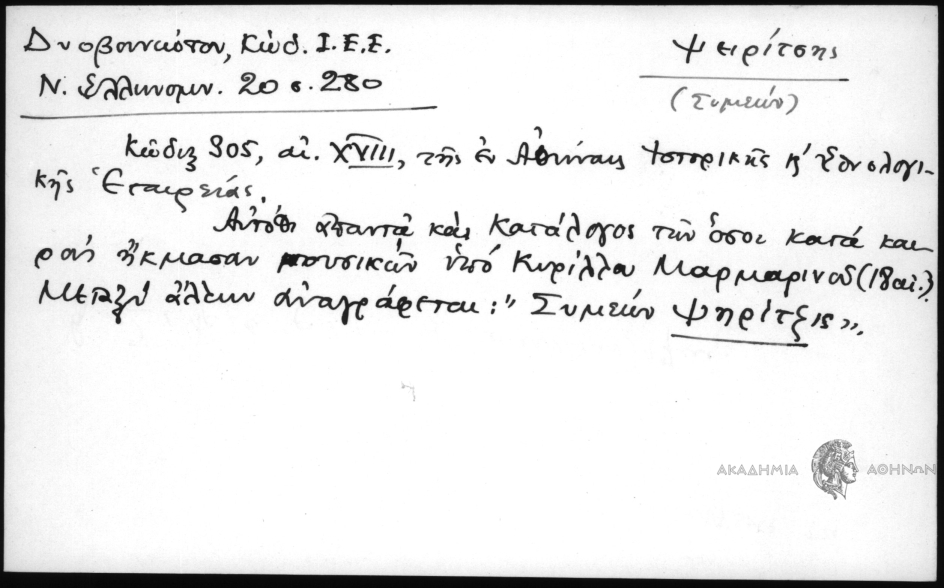 Δυοβουνιώτου, Κώδ. Ι.Ε.Ε.
Ν. Ελληνομν. 20 σ. 280
Ψειρίτσης
(Συμεών)
Κώδιξ 305, αἰ. XVIII, τῆς ἐν Ἀθήναις Ἱστορικῆς κ' Ἐθνολογι-
κῆς Ἑταιρείας.
Αὐτόθι ἀπαντᾷ καὶ Κατάλογος τῶν ὅσοι κατὰ και-
ροὺς ἤκμασαν μουσικῶν ὑπό Κυρίλλου Μαρμαρινοῦ (18 αἰ.).
Μεταξύ ἄλλων ἀναγράφεται: "Συμεών Ψηρίτζις».
ΑΚΑΔΗΜΙΑ ΑΘΗΝΩΝ